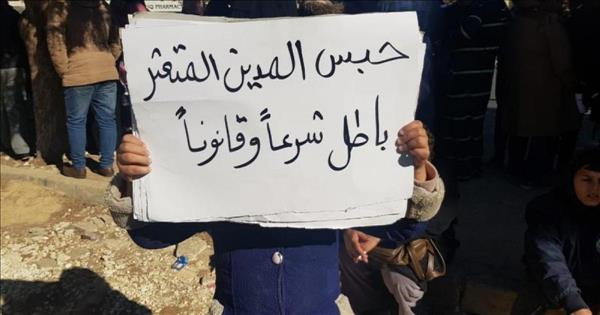 PHARMACY
حبس المدين المتعثر
باطل شرعاً وقانوناً